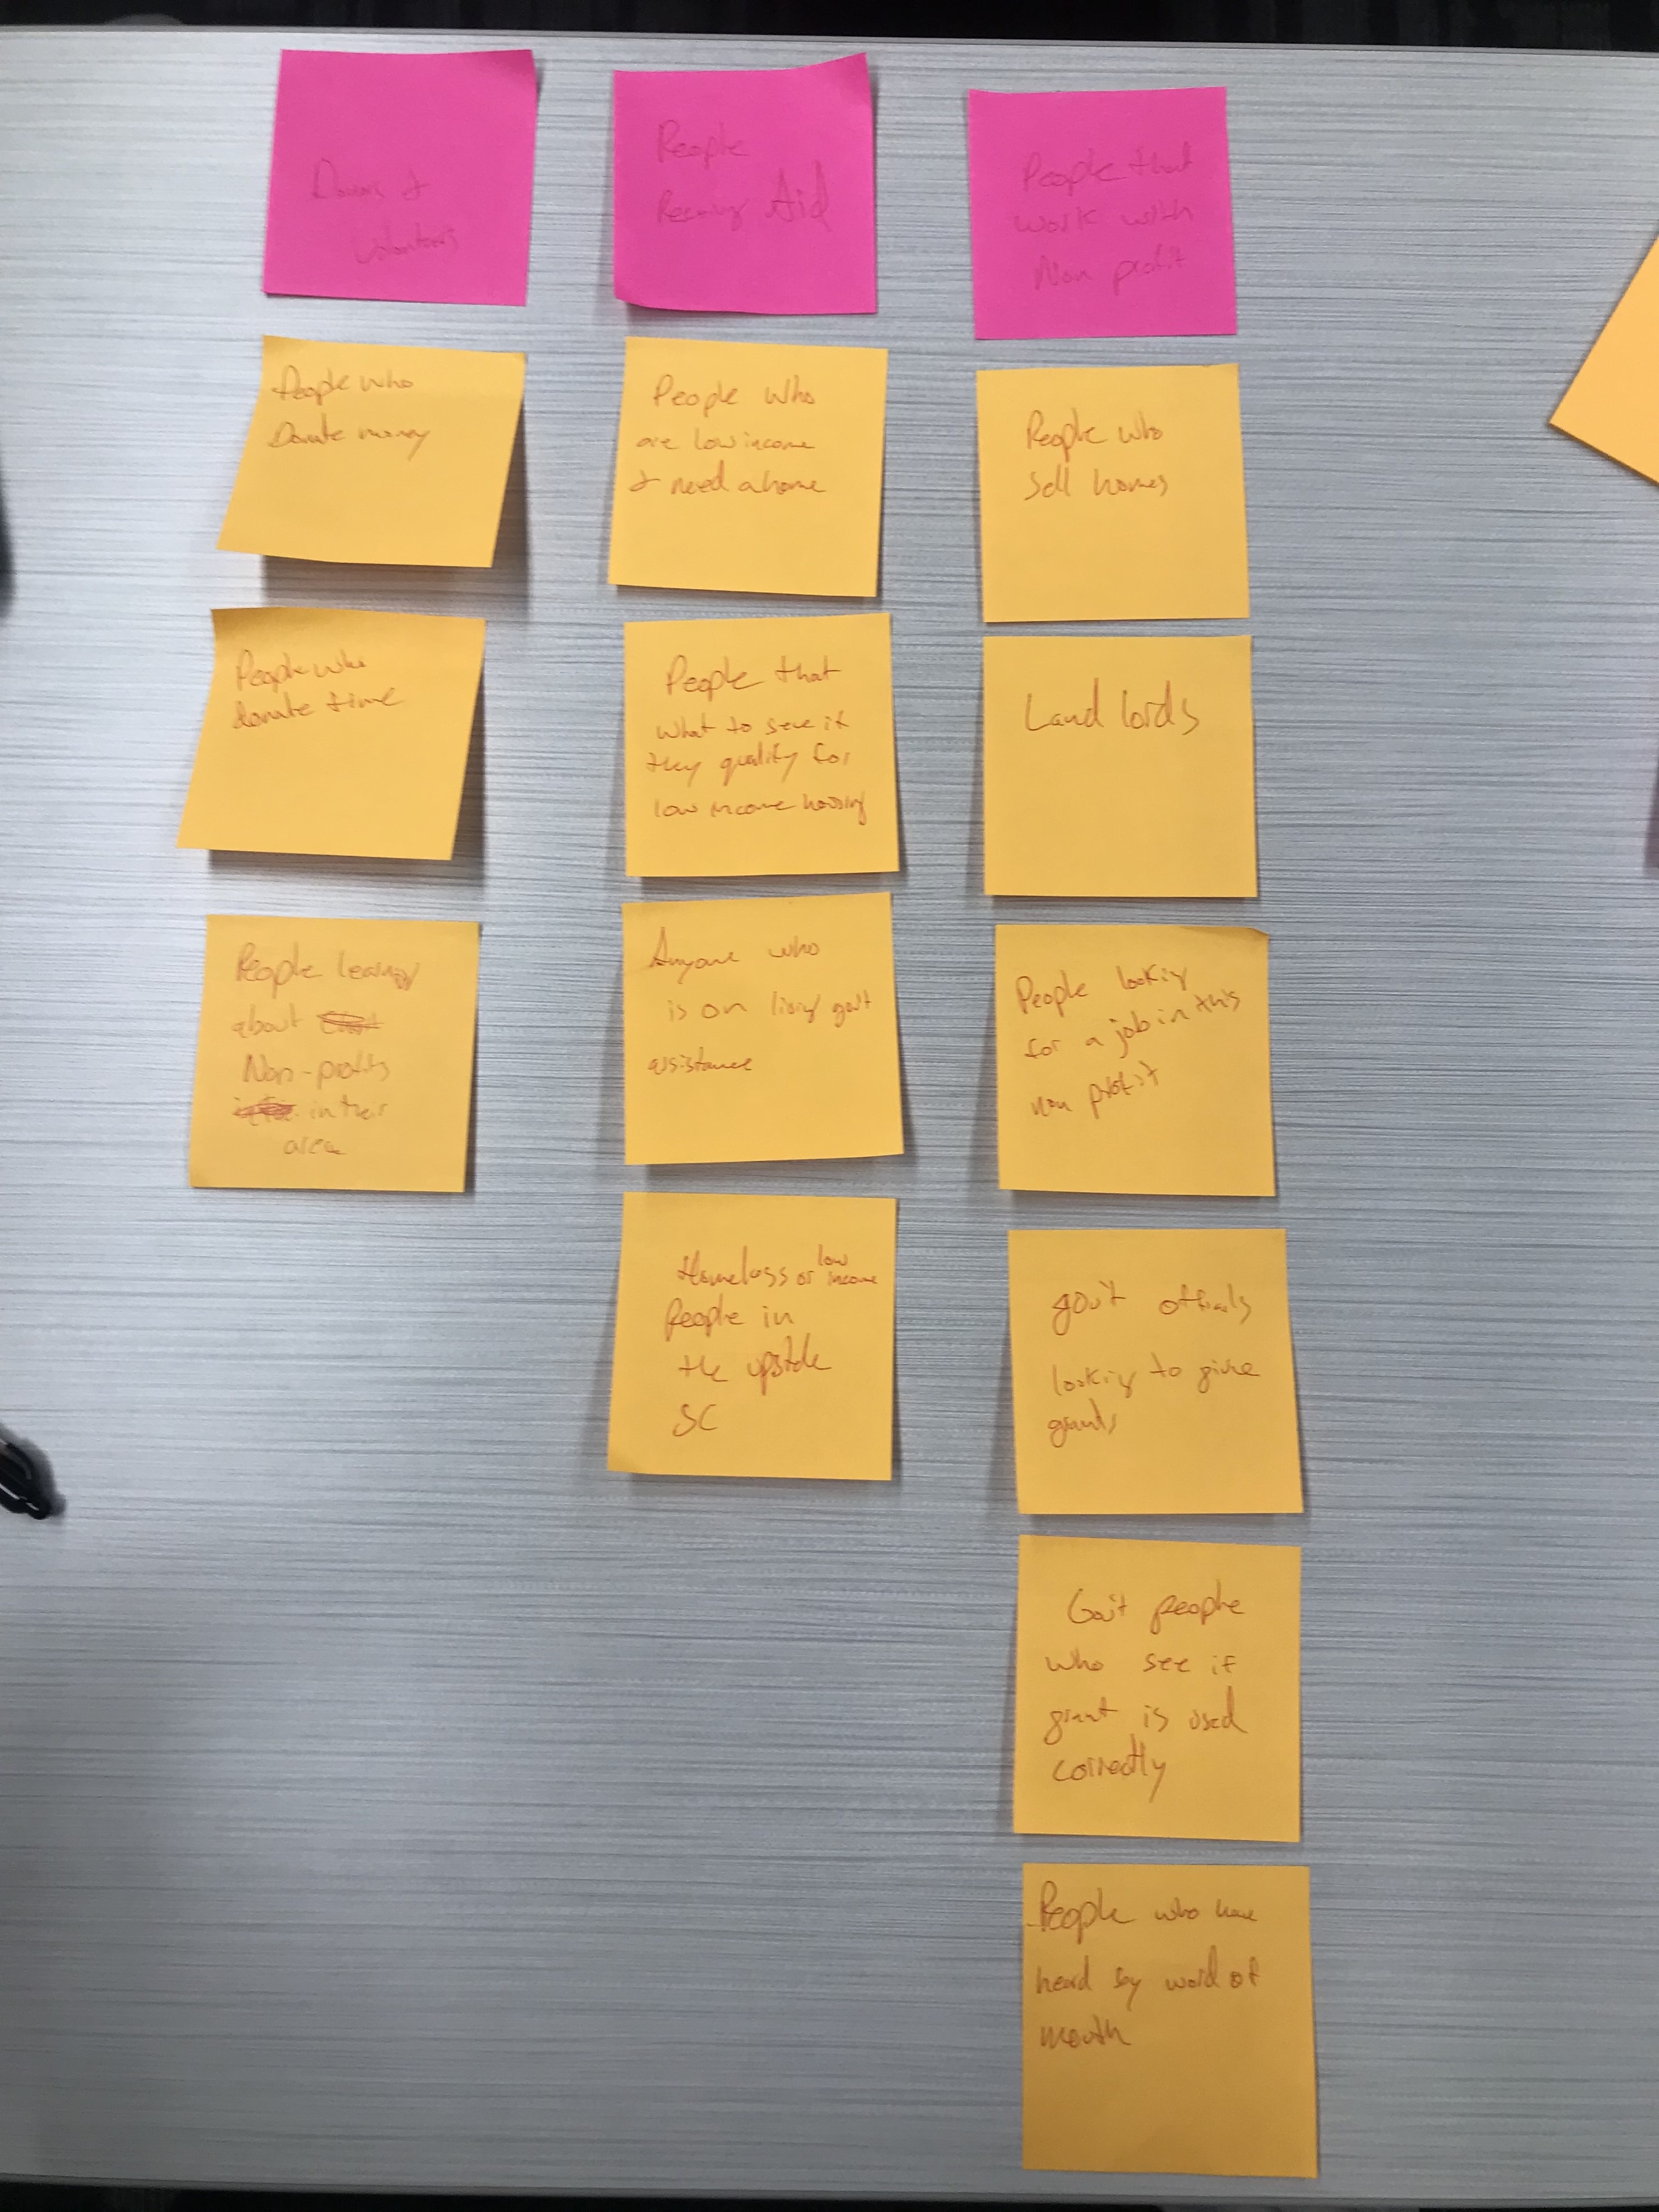 Donors &
volunteers
People who
Donate money
People who
donate time
People learning
about
Non-profits
in their
area
People
Receiving Aid
People who
are low income
& need a home
People that
what to see if
they qualify for
low income housing
Anyone who
is on living gov't
assistance
Homeless or low income
People in
the upstate
SC
People that
work with
Non profit
People who
sell homes
Land lords
People looking
for a job in this
non profit
gov't officials
looking to give
grants
Gov't people
who see if
grant is used
correctly
People who have
heard by word of
mouth